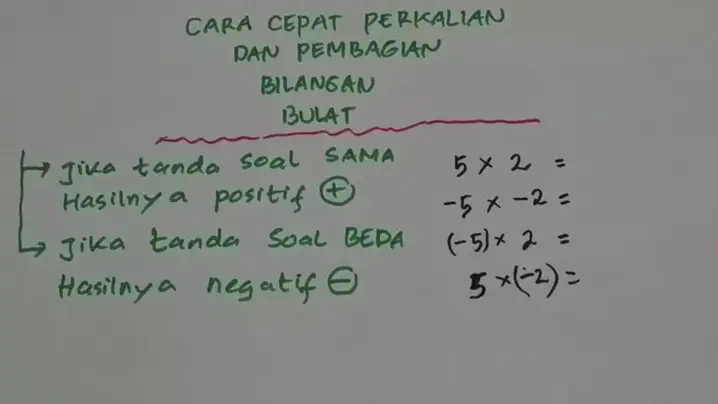 CARA CEPAT PERKALIAN
DAN PEMBAGIAN
BILANGAN
BULAT
→ Jika tanda soal SAMA
Hasilnya positif ⊕
→ Jika tanda soal BEDA
Hasilnya negatif ⊖
5 × 2 =
-5 × -2 =
(-5) × 2 =
5 × (-2) =